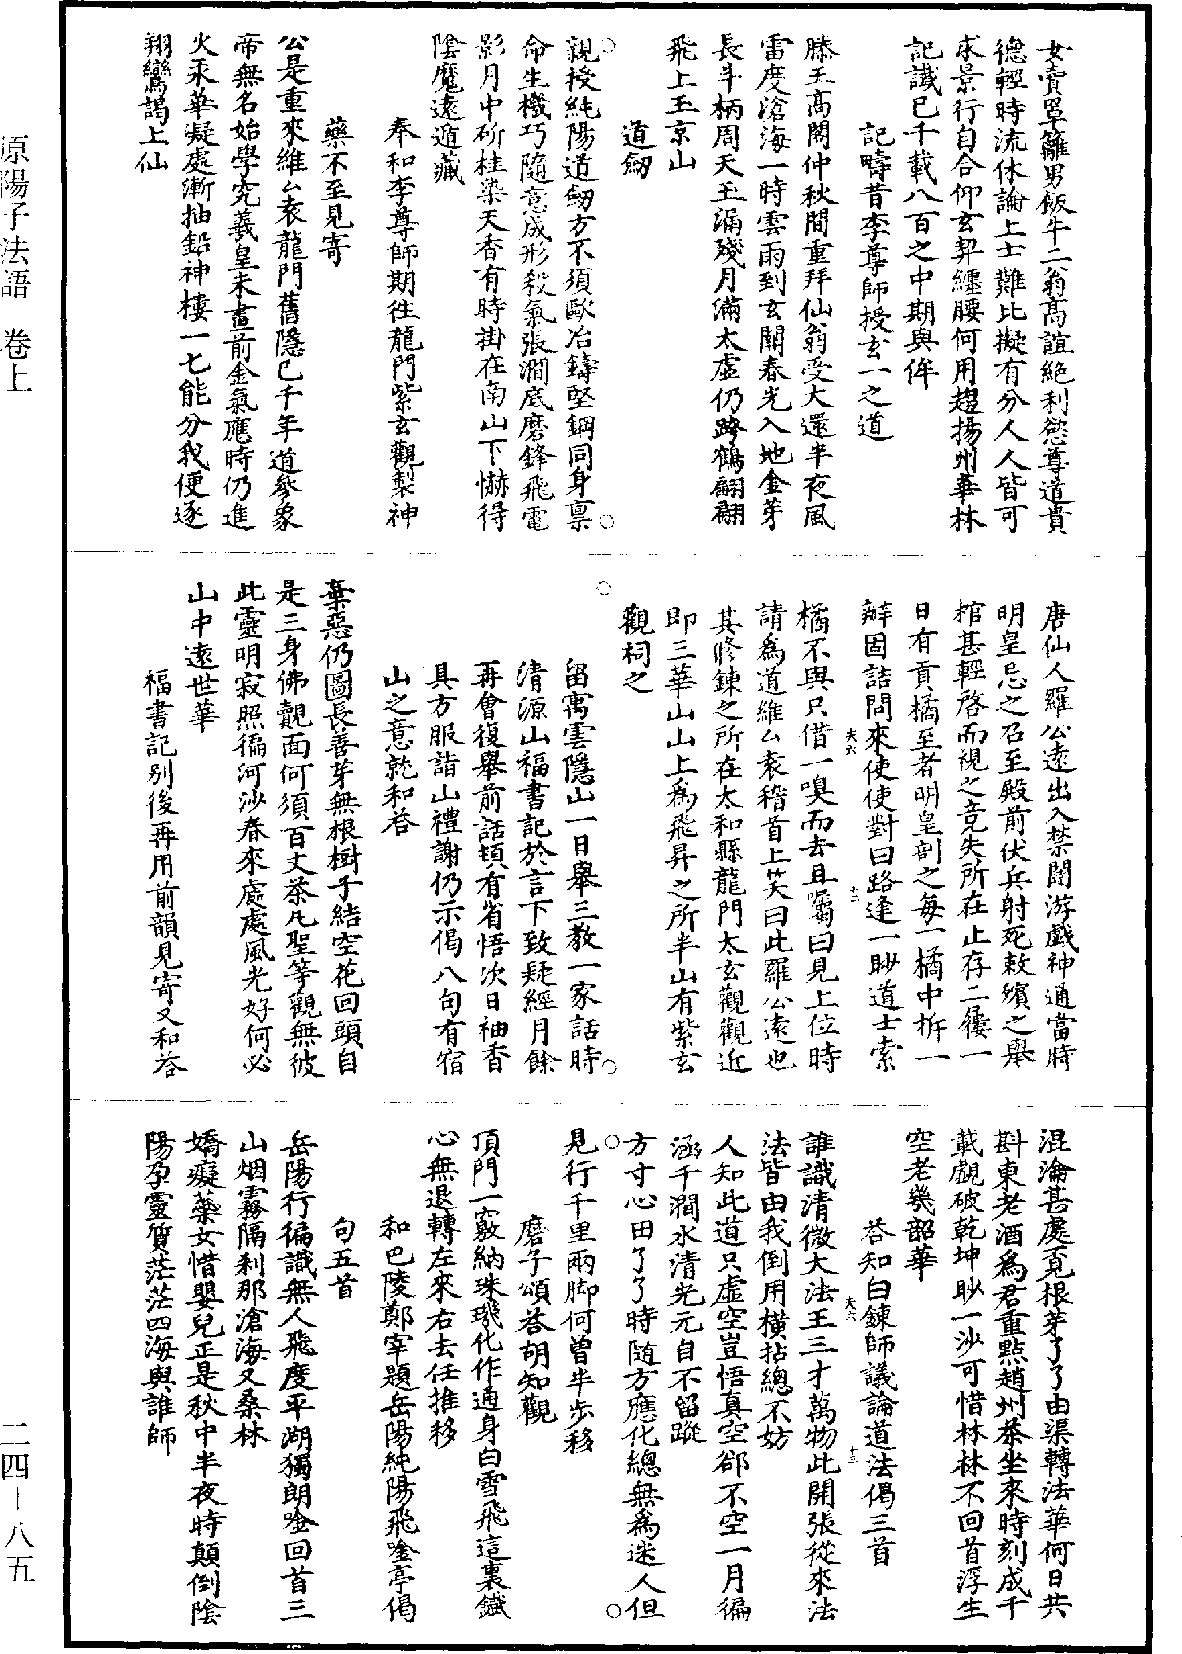 女賣罩籬男飯牛二翁高誼絶利慾尊道貴
德輕時流休論上士難比擬有分人人皆可
求景行自合仰玄契纏腰何用趨揚州華林
記識已千載八百之中期與侔
記疇昔李尊師授玄一之道
滕王高閣仲秋間重拜仙翁受大還半夜風
雷度滄海一時雲雨到玄關春光入地金芽
長斗柄周天玉漏殘月滿太虛仍跨鶴翩翩
飛上玉京山
道劒
親授純陽道劒方不須歐冶鑄堅鋼同身禀
命生機巧隨意成形殺氣張澗底磨鋒飛電
影月中斫桂染天香有時掛在南山下懒得
陰魔遠遁藏
奉和李尊師期往龍門紫玄觀製神
藥不至見寄
公是重來維厶袁龍門舊隱已千年道參象
帝無名始學究羲皇未畫前金氣應時仍進
火汞華凝處漸抽鉛神棲一七能分我便逐
翔鸞謁上仙
唐仙人羅公遠出入禁闥游戲神通當時
明皇忌之召至殿前伏兵射死敕殯之舉
棺甚輕啓而視之竞失所在止存二屨一
日有貢橘至者明皇剖之每一橘中拆一
辦固詰問來使使對曰路逢一眇道士索
橘不與只借一嗅而去且囑曰見上位時
請爲道維厶袁稽首上笑曰此羅公遠也
其修鍊之所在太和縣龍門太玄觀觀近
即三華山山上爲飛昇之所半山有紫玄
觀祠之
留寓雲隱山一日舉三教一家話時
清源山福書記於言下致疑經月餘
再會復舉前話頓有省悟次日袖香
具方服詣山禮謝仍示偈八句有宿
山之意就和荅
棄惡仍圖長善芽無根樹子結空花回頭自
是三身佛覿面何須百丈茶凡聖等觀無彼
此靈明寂照徧河沙春來處處風光好何必
山中遠世華
福書記别後再用前韻見寄又和荅
混淪甚處覔根芽了了由渠轉法華何日共
斟東老酒爲君重點趙州茶坐來時刻成千
載覷破乾坤眇一沙可惜林林不回首浮生
空老幾韶華
荅知白鍊師議論道法偈三首
誰識清微大法王三才萬物此開張從來法
法皆由我倒用橫拈總不妨
人知此道只虛空豈悟真空郤不空一月徧
涵千澗水清光元自不留蹤
方寸心田了了時随方應化總無爲迷人但
見行千里兩脚何曾半步移
磨子頌荅胡知觀
頂門一竅納珠璣化作通身白雪飛這裏鐵
心無退轉左來右去任推移
和巴陵鄭宰題岳陽純陽飛唫亭偈
句五首
岳陽行徧識無人飛度平湖獨朗唫回首三
山烟霧隔刹那滄海又桑林
嬌癡藥女惜嬰兒正是秋中半夜時顛倒陰
陽孕靈質茫茫四海與誰師
夫六
十二
夫六
十三
原陽子法語 卷上
二四－八五